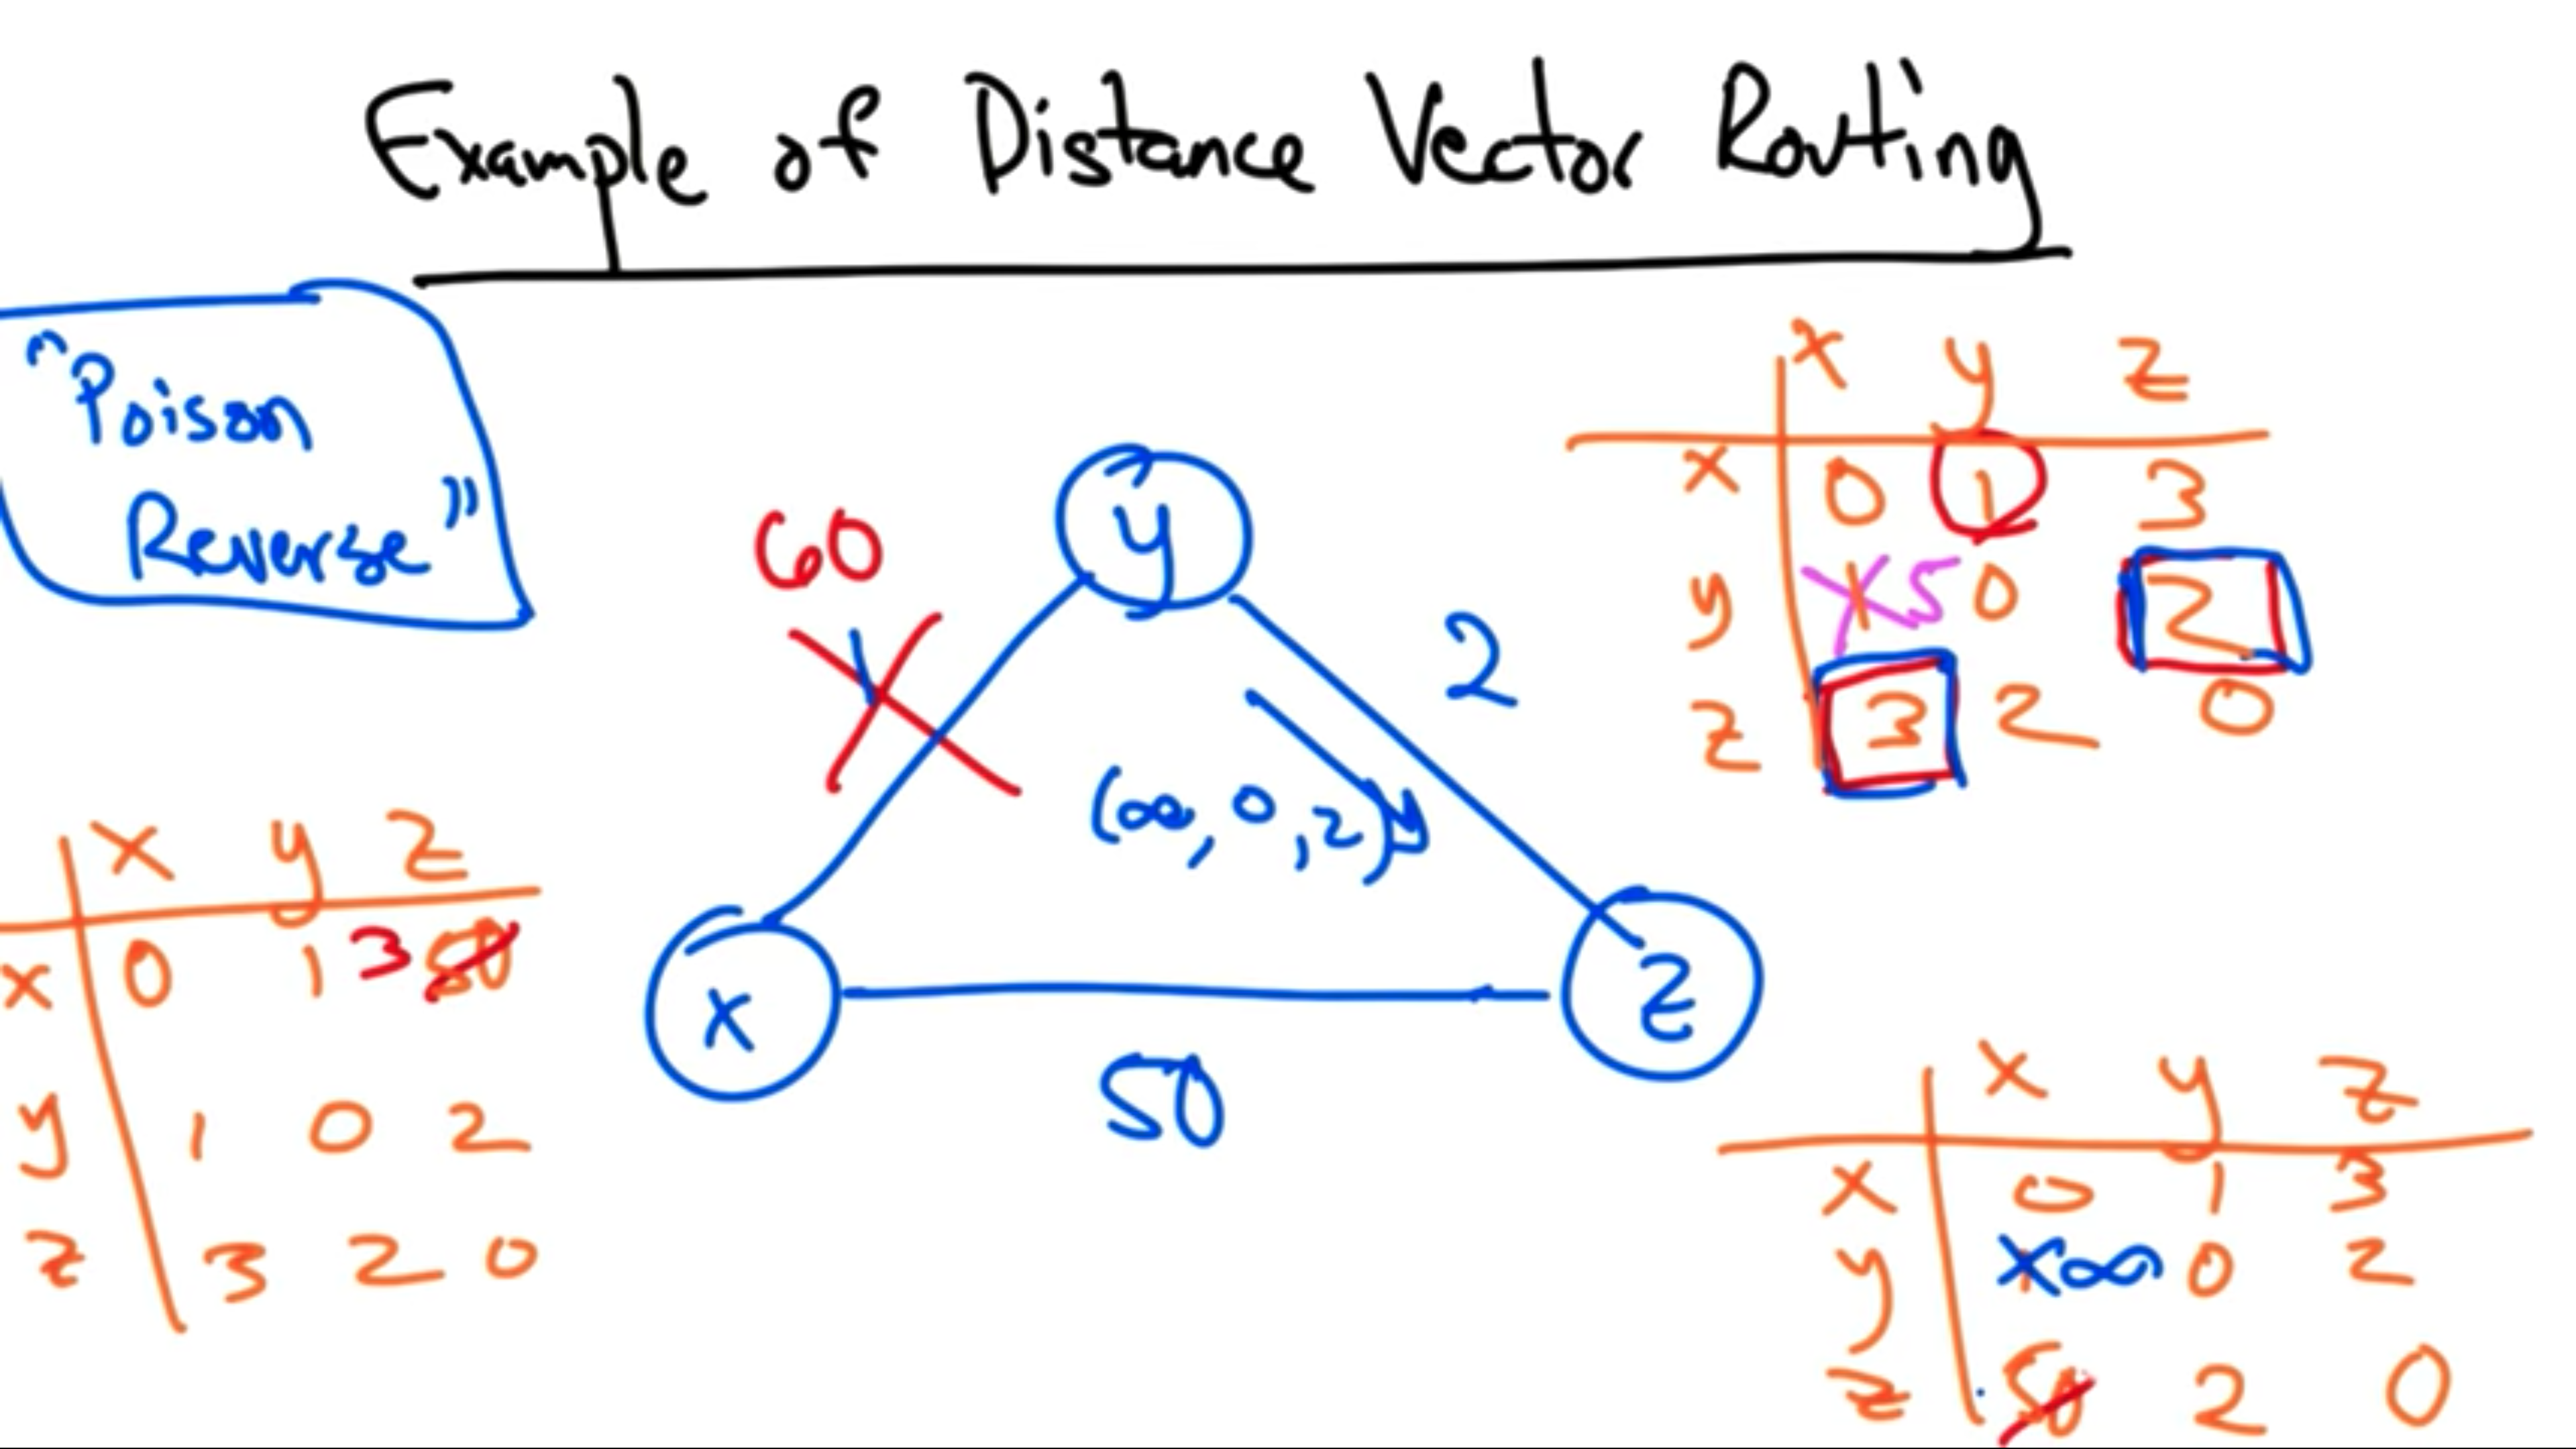 Example of Distance Vector Routing
"Poison
Reverse"
x y z
x 0 1 3
y 1 5 0 2
z 3 2 0
y
60
1
2
(∞, 0, 2)
x
z
50
x y z
x 0 1 3 50
y 1 0 2
z 3 2 0
x y z
x 0 1 3
y 1 ∞ 0 2
z 50 2 0